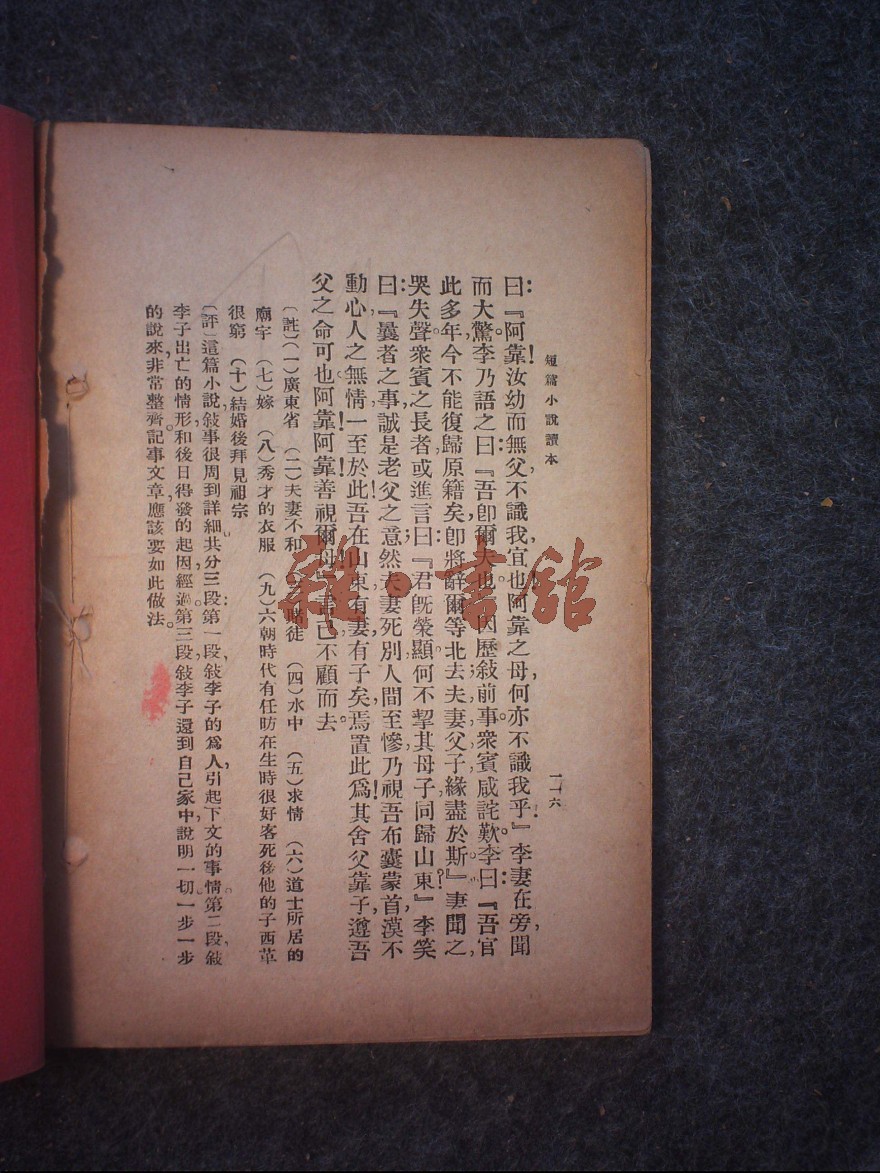 短篇小說讀本
一一六
曰：『阿靠！汝幼而無父，不識我宜也！阿靠之母，何亦不識我乎！』李妻在旁，聞
而大驚。李乃語之曰：『吾卽爾夫也。』因歷敍前事，衆賓咸詫歎。李曰：『吾官
此多年，今不能復歸原籍矣，卽將辭爾等北去，夫妻父子，緣盡於斯。』妻聞之，
哭失聲。衆賓之長者，或進言曰：『君旣榮顯，何不挈其母子，同歸山東？』李笑
曰：『曩者之事，誠是老父之意，然夫妻死別，人間至慘，乃視吾布囊蒙首，漠不
動心，人之無情，一至於此！吾在山東，有妻有子矣，焉置此爲！其舍父靠子，遵吾
父之命可也！阿靠阿靠！善視爾母！不顧而去。
〔註〕（一）廣東省　（二）夫妻不和　賭徒　（四）水中　（五）求情　（六）道士所居的
廟宇　（七）嫁　（八）秀才的衣服　（九）六朝時代有任昉在生時很好客死後他的子西華
很窮　（十）結婚後拜見祖宗
〔評〕這篇小說，敍事很周到詳細。共分三段：第一段，敍李子的爲人，引起下文的事情。第二段，敍
李子出亡的情形，和後日得發的起因經過。第三段，敍李子還到自己家中，說明一切。一步一步
的說來，非常整齊，記事文章，應該要如此做法。
雜·書館